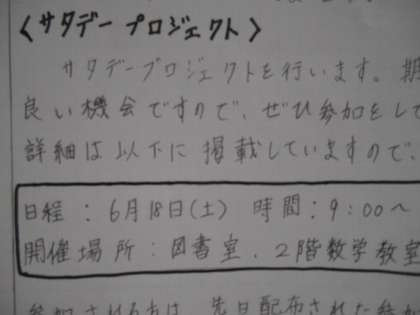 〈サタデープロジェクト〉
サタデープロジェクトを行います。期
良い機会ですので、ぜひ参加をして
詳細は以下に掲載していますので、
日程：6月18日(土) 時間：9:00〜
開催場所：図書室、2階数学教室
参加される方は、先日配布された